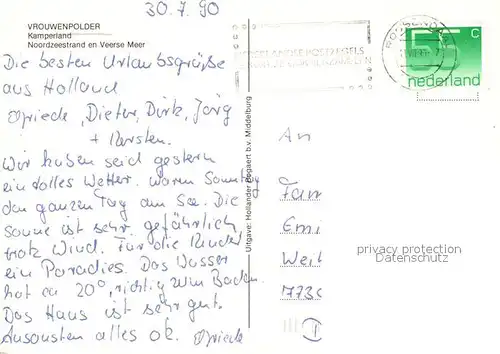 30.7.90
VROUWENPOLDER
Kamperland
Noordzeestrand en Veerse Meer
Die besten Urlaubsgrüße
aus Holland
Friede, Dieter, Dirk, Jörg
+ Karsten.
Wir haben seid gestern
ein tolles Wetter. Waren Sonntag
den ganzen Tag am See. Die
Sonne ist sehr gefährlich,
trotz Wind. Für die Kinder
ein Paradies. Das Wasser
hat ca 20°, richtig zum Baden.
Das Haus ist sehr gut.
Ansonsten alles ok. Friede
Uitgave: Hollander Bogaert b.v. Middelburg
55 c
nederland
An
Fam
Emi
Weit
7730
privacy protection
Datenschutz